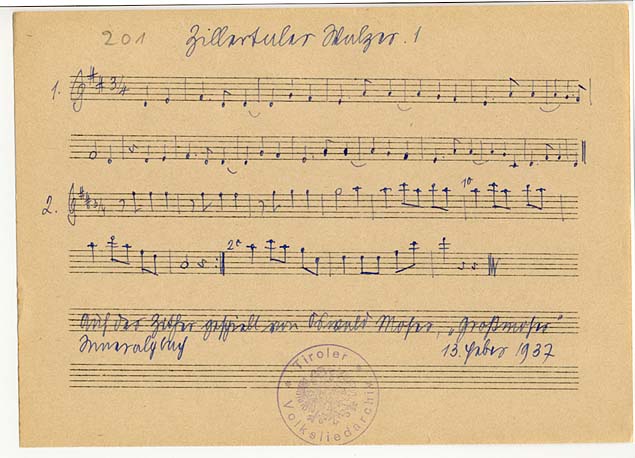 201 Zillertaler Walzer. 1
1. 3/4
2. 3/4 1º
2º
Auf der Zither gespielt von Oswald Moser, „Großmoser"
Inneralpbach 13. Feber 1937
Tiroler Volksliedarchiv